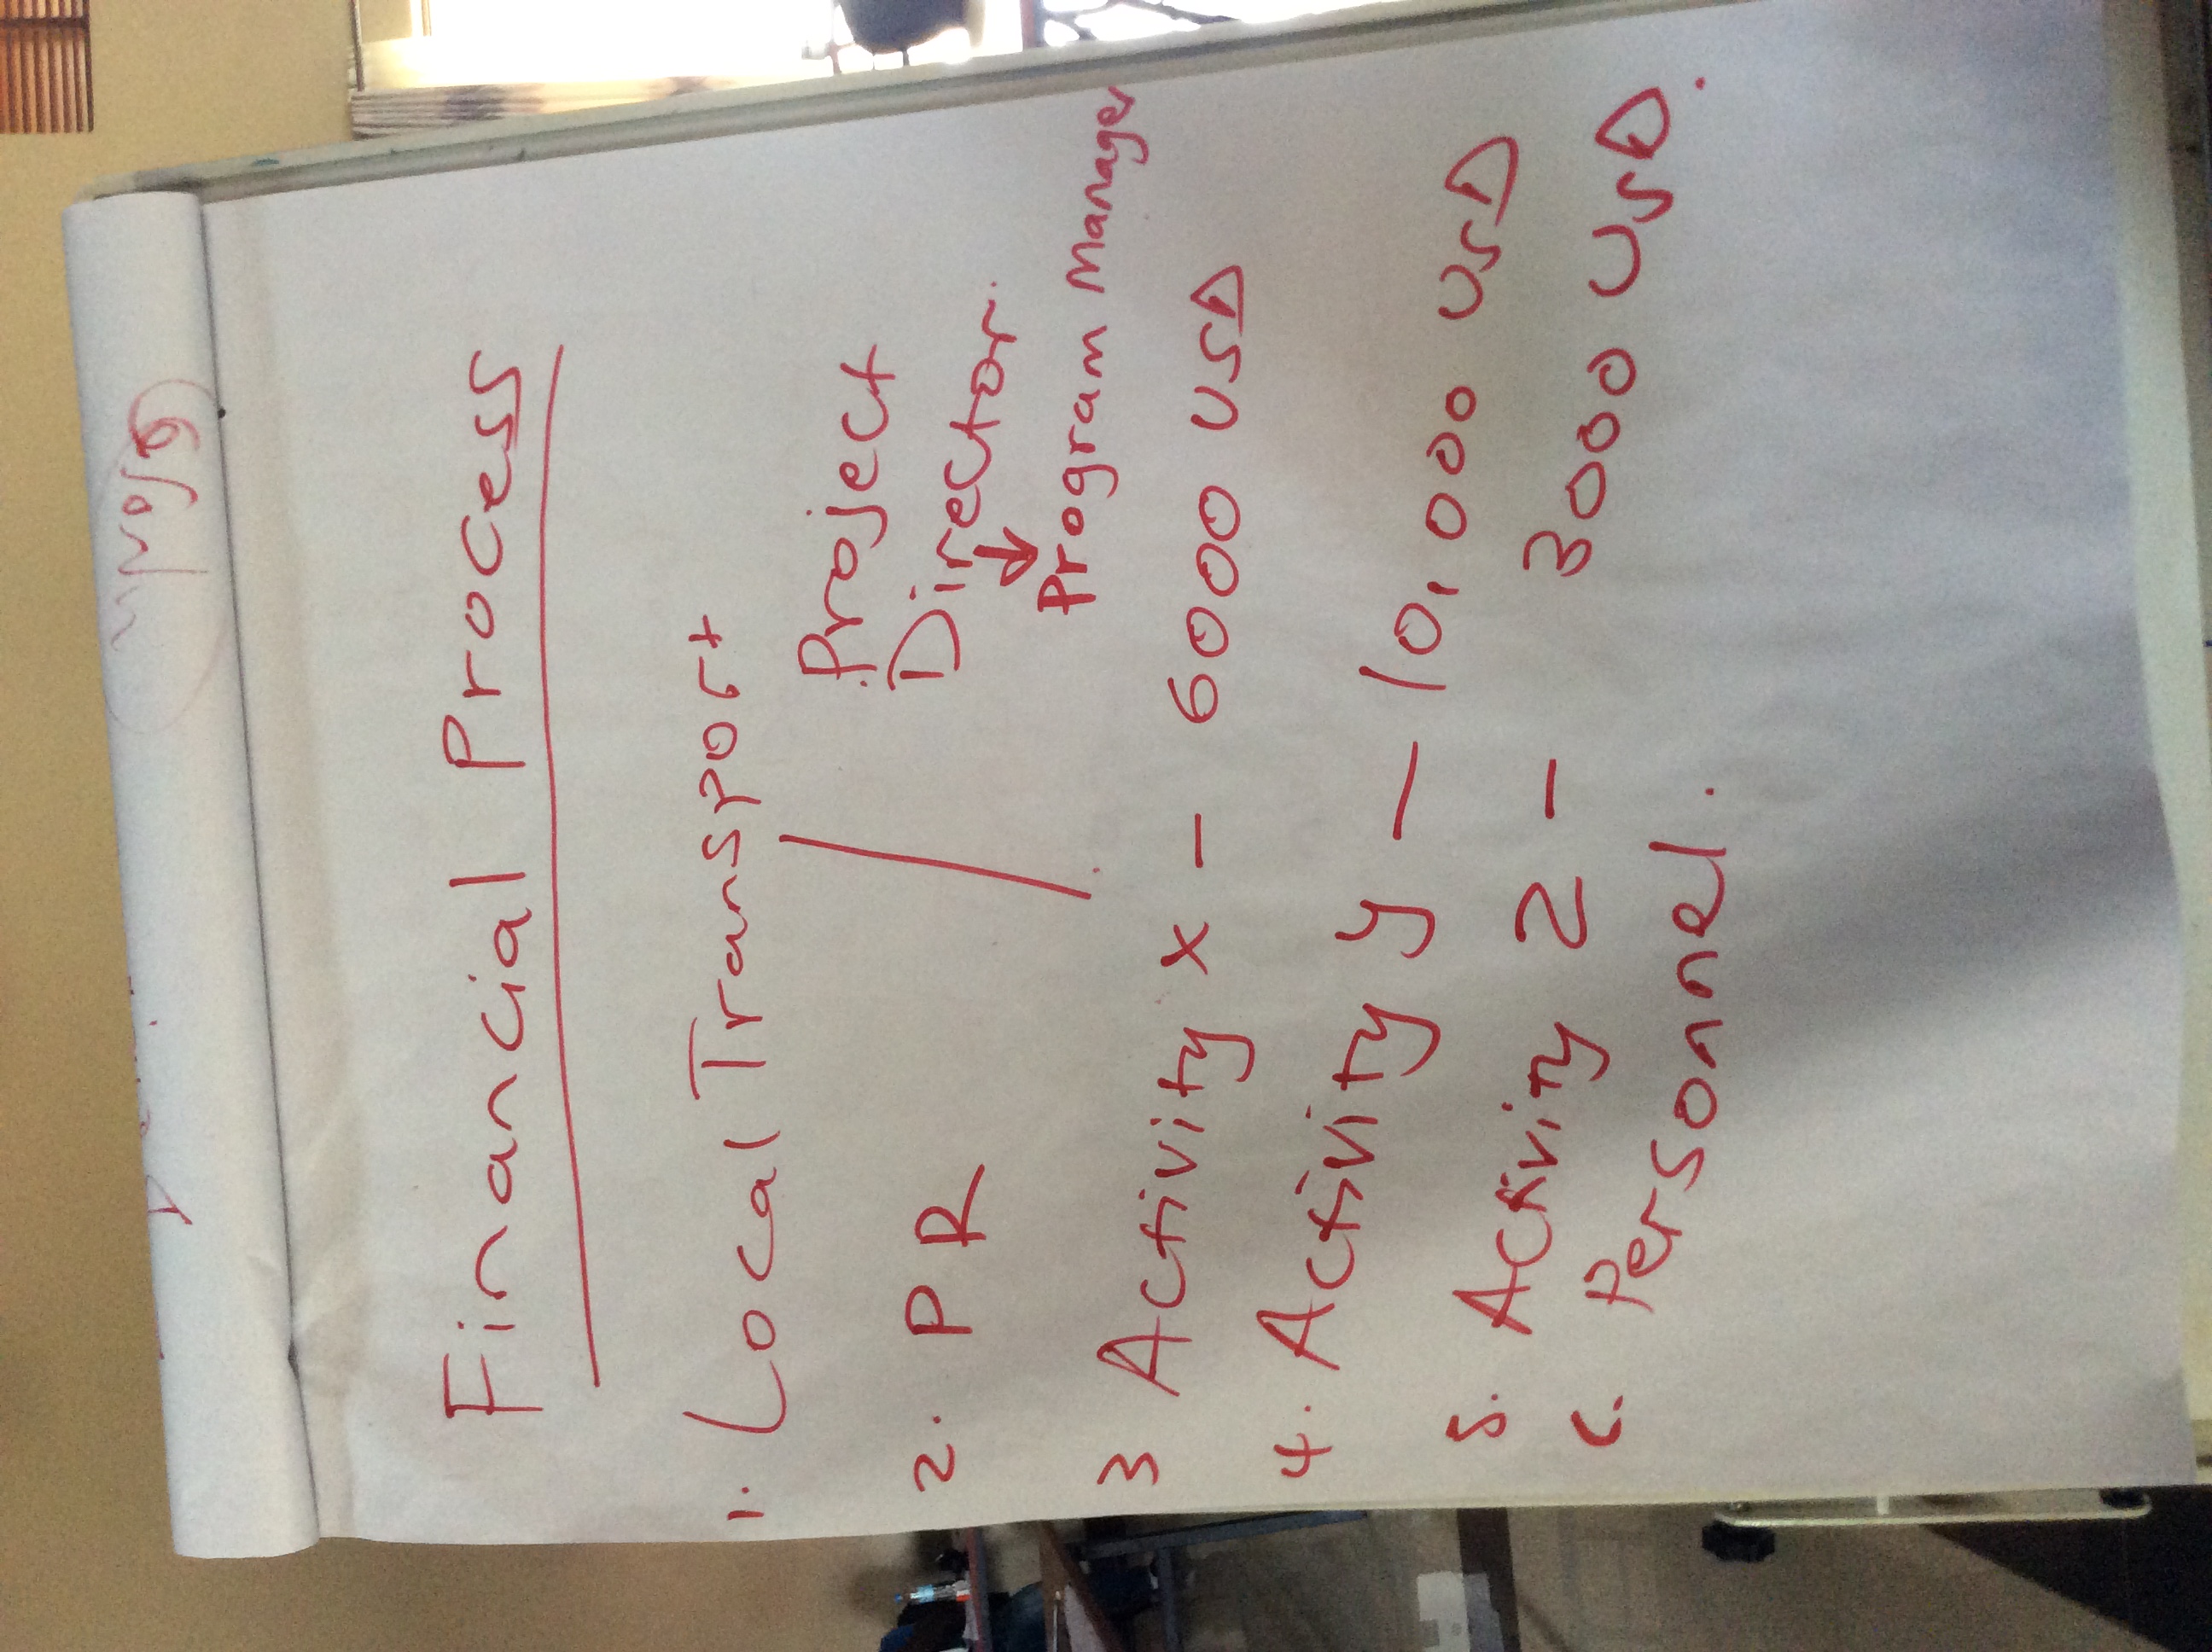 Financial Process
1. Local Transport
Project
Director.
2. PR
Program Manager
3 Activity x - 6000 USD
4. Activity y - 10,000 USD
5. Activity Z - 3000 USD.
6. Personnel.